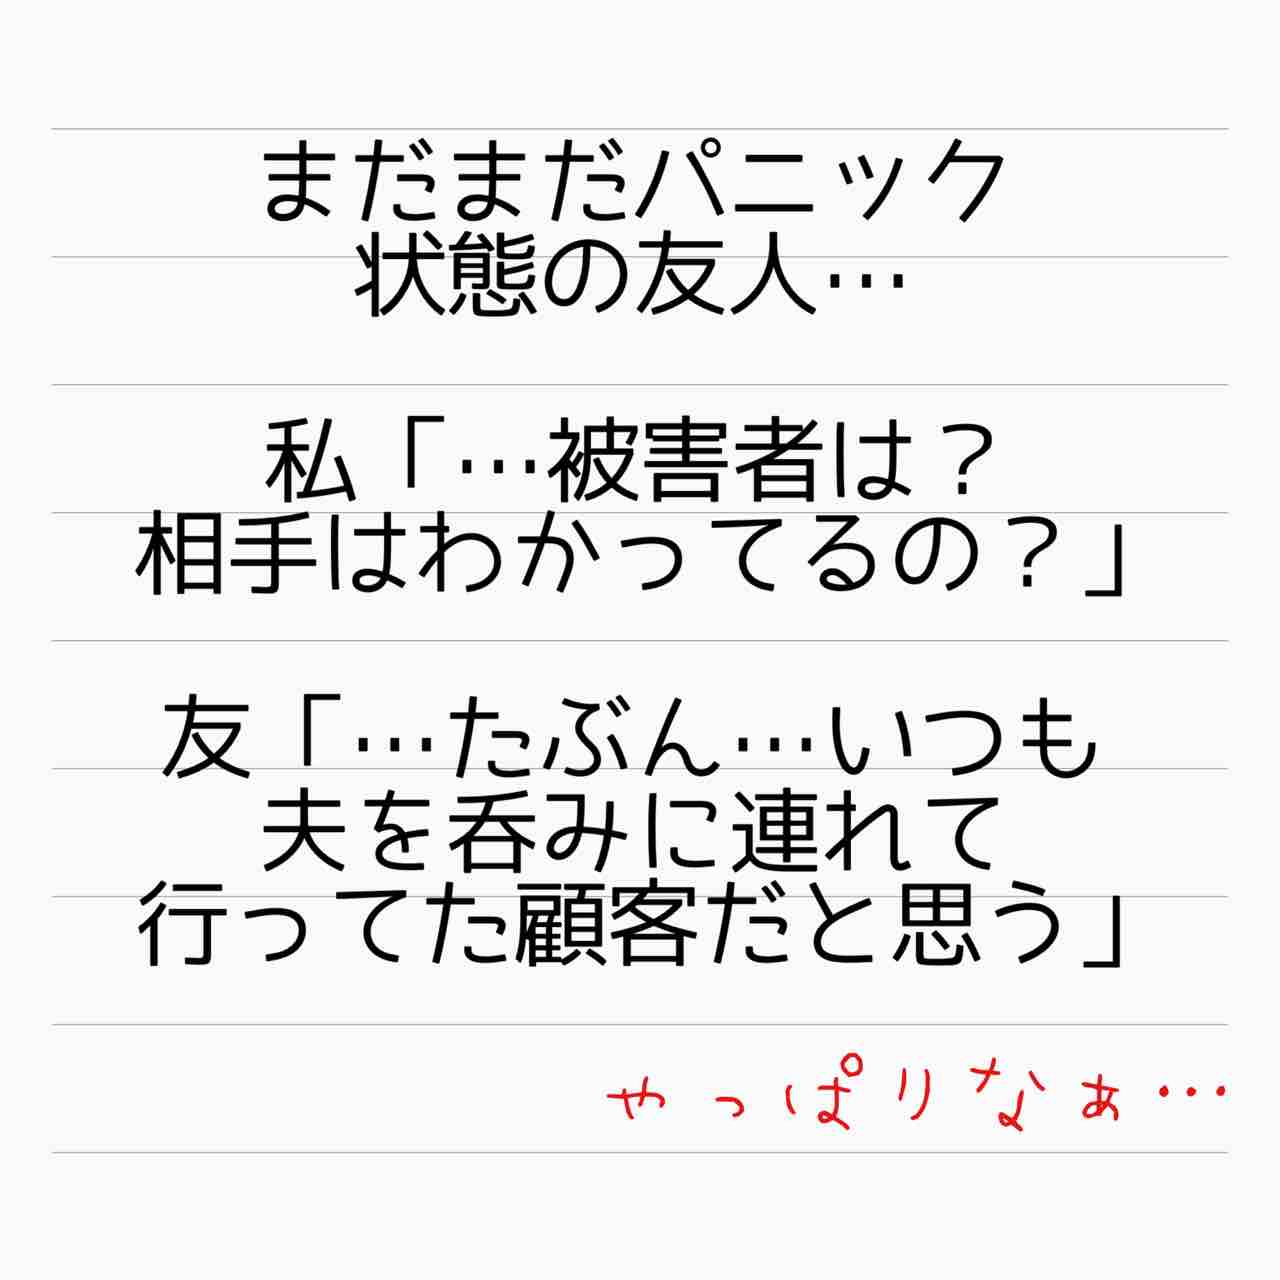 まだまだパニック
状態の友人…
私「…被害者は？
相手はわかってるの？」
友「…たぶん…いつも
夫を呑みに連れて
行ってた顧客だと思う」
やっぱりなぁ…